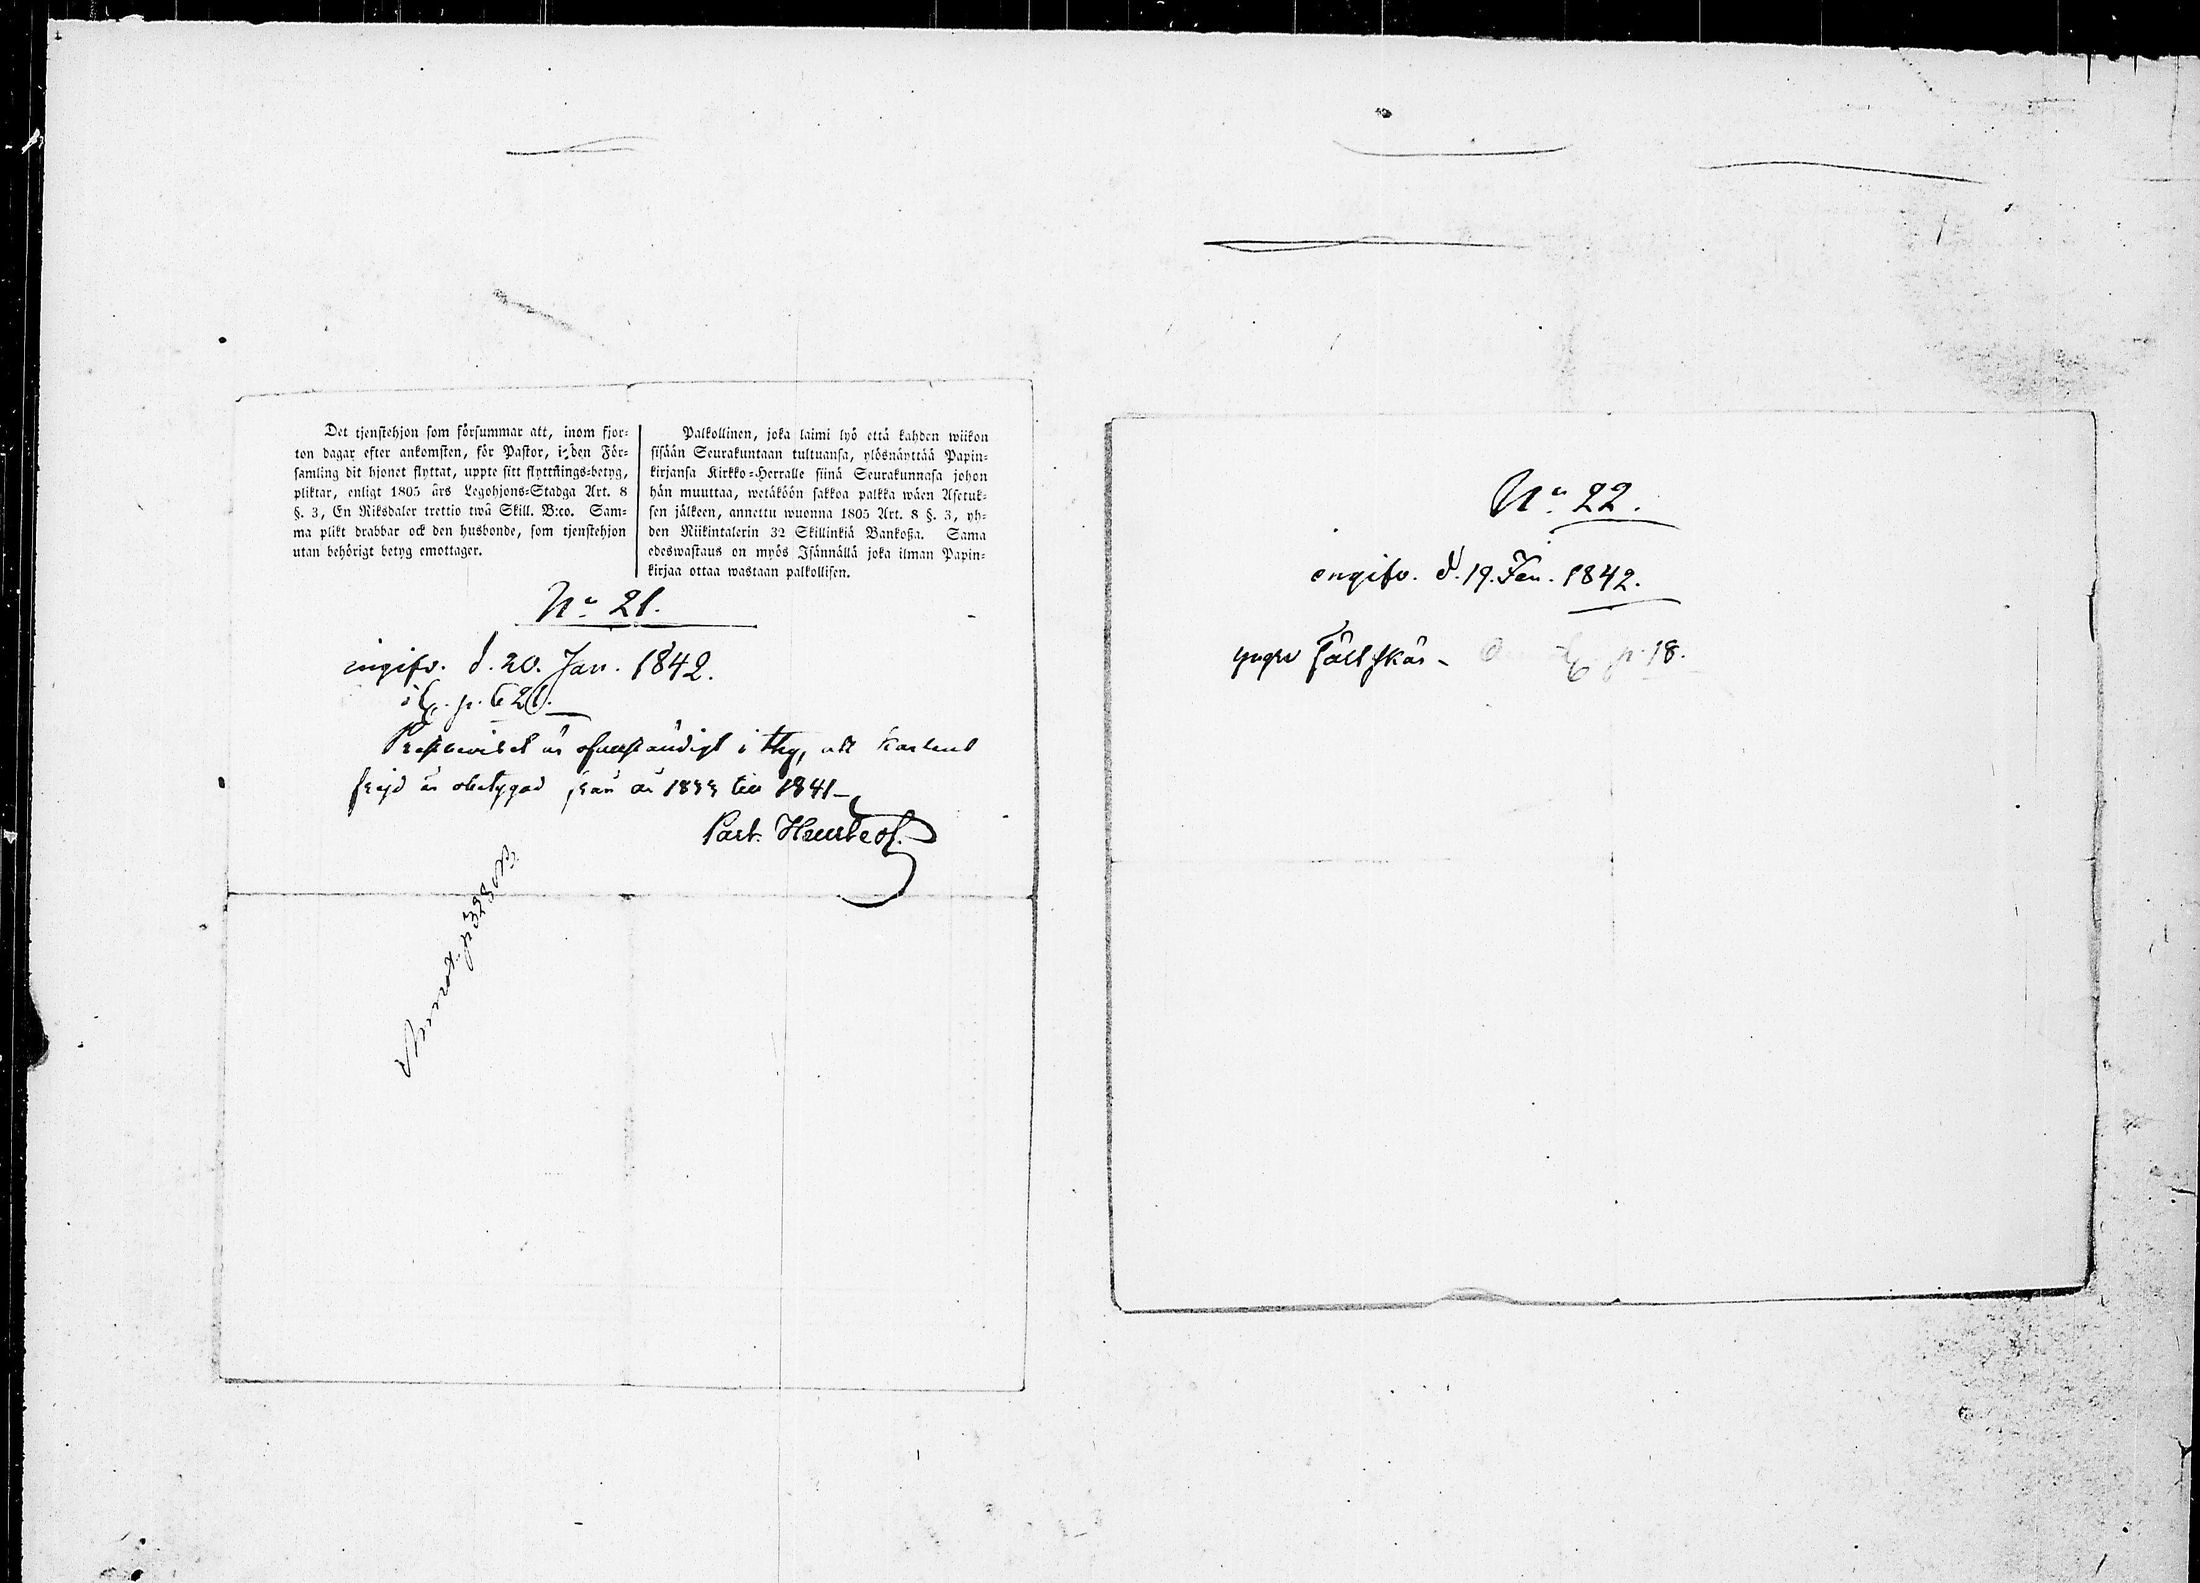 Det tjenstehjon som försummar att, inom fjor-
ton dagar efter ankomsten, för Pastor, i den För-
samling dit hjonet flyttat, uppte sitt flyttnings-betyg,
pliktar, enligt 1805 års Legohjons-Stadga Art. 8
§. 3, En Riksdaler trettio twå Skill. B:co. Sam-
ma plikt drabbar ock den husbonde, som tjenstehjon
utan behörigt betyg emottager.
Palkollinen, joka laimi lyö että kahden wiikon
sisään Seurakuntaan tultuansa, ylösnäyttää Papin-
kirjansa Kirkko-Herralle siinä Seurakunnasa johon
hän muuttaa, wetäköön sakkoa palkka wäen Asetuk-
sen jälkeen, annettu wuonna 1805 Art. 8 §. 3, yh-
den Riikintalerin 32 Skillinkiä Bankoßa. Sama
edeswastaus on myös Isännällä joka ilman Papin-
kirjaa ottaa wastaan palkollisen.
No 21.
ingifv. d. 20. Jan. 1842.
p. 621.
är ofullständigt i ty, att karlens
frejd är obetygad från år 1833 till 1841 -
Past.
p. 328
No 22.
ingifv. d. 19. Jan. 1842.
yngre Fältskär - p. 18.